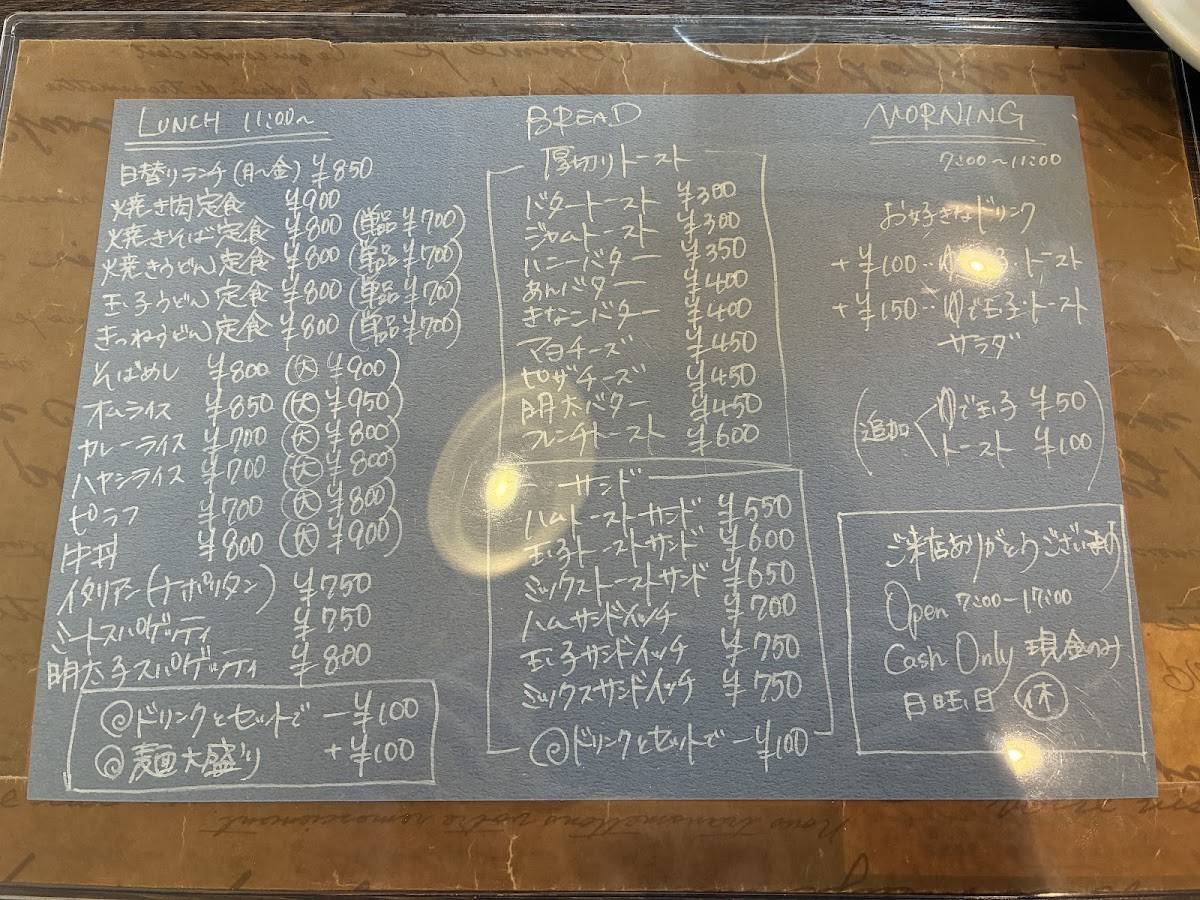 LUNCH 11:00~
日替りランチ(月~金) ¥850
焼き肉定食 ¥900
焼きそば定食 ¥800 (単品 ¥700)
焼きうどん定食 ¥800 (単品 ¥700)
玉子うどん定食 ¥800 (単品 ¥700)
きつねうどん定食 ¥800 (単品 ¥700)
そばめし ¥800 (大 ¥900)
オムライス ¥850 (大 ¥950)
カレーライス ¥700 (大 ¥800)
ハヤシライス ¥700 (大 ¥800)
ピラフ ¥700 (大 ¥800)
牛丼 ¥800 (大 ¥900)
イタリアン(ナポリタン) ¥750
ミートスパゲッティ ¥750
明太子スパゲッティ ¥800
◎ドリンクとセットで -¥100
◎麺大盛り +¥100
BREAD
厚切りトースト
バタートースト ¥300
ジャムトースト ¥300
ハニーバター ¥350
あんバター ¥400
きなこバター ¥400
マヨチーズ ¥450
ピザチーズ ¥450
明太バター ¥450
フレンチトースト ¥600
サンド
ハムトーストサンド ¥550
玉子トーストサンド ¥600
ミックストーストサンド ¥650
ハムサンドイッチ ¥700
玉子サンドイッチ ¥750
ミックスサンドイッチ ¥750
◎ドリンクとセットで -¥100
MORNING
7:00~11:00
お好きなドリンク
+¥100‥ゆで玉子・トースト
+¥150‥ゆで玉子・トースト
サラダ
(追加 ゆで玉子 ¥50
トースト ¥100)
ご来店ありがとうございます
Open 7:00-17:00
Cash Only 現金のみ
日曜日 休
Nous transmettons votre